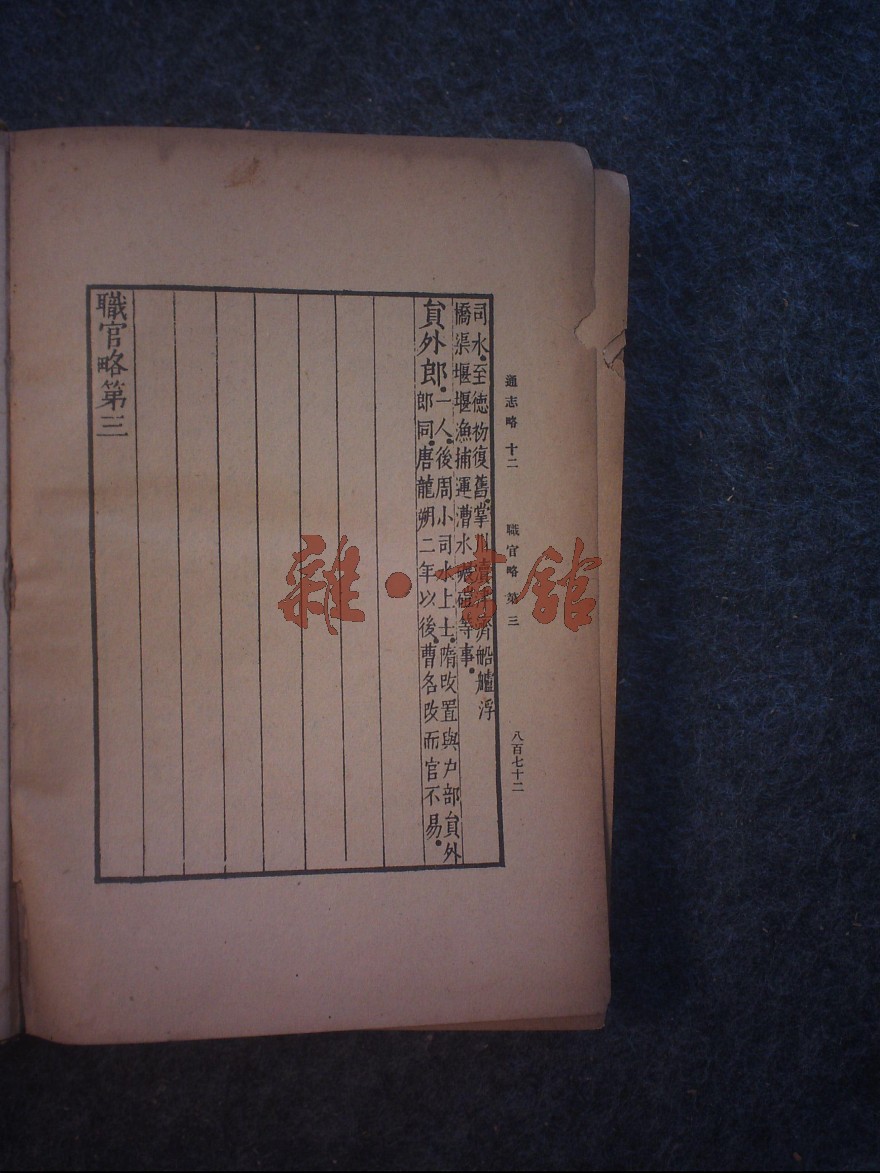 通志略 十二 職官略 第三 八百七十二
司水至德初復舊掌川瀆津濟船艫浮
橋渠堰堰漁捕運漕水碾磑等事
員外郎一人後周小司水上士隋改置與戶部員外
郎同唐龍朔二年以後曹名改而官不易
職官略第三
雜·書館